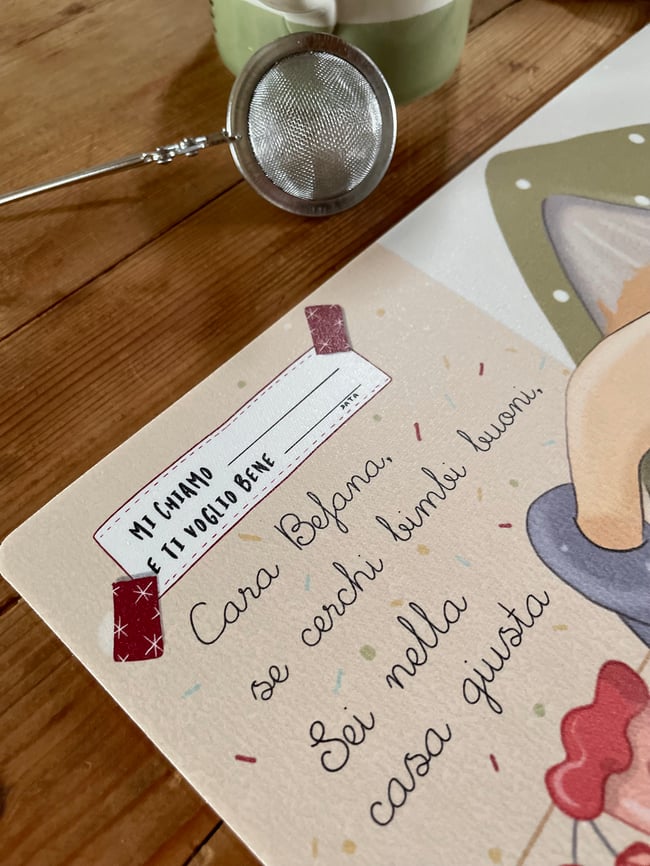 MI CHIAMO
E TI VOGLIO BENE
DATA
Cara Befana,
se cerchi bimbi buoni,
Sei nella
casa giusta